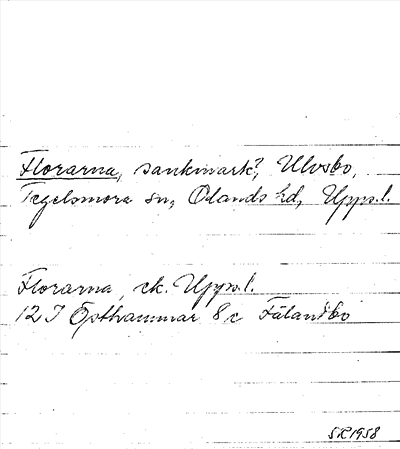 Florarna, sankmark?, Ulvsbo,
Tegelsmora sn, Olands hd, Upps.l.
Florarna, ek. Upps.l.
12I Östhammar 8c Fälandbo
SK1958